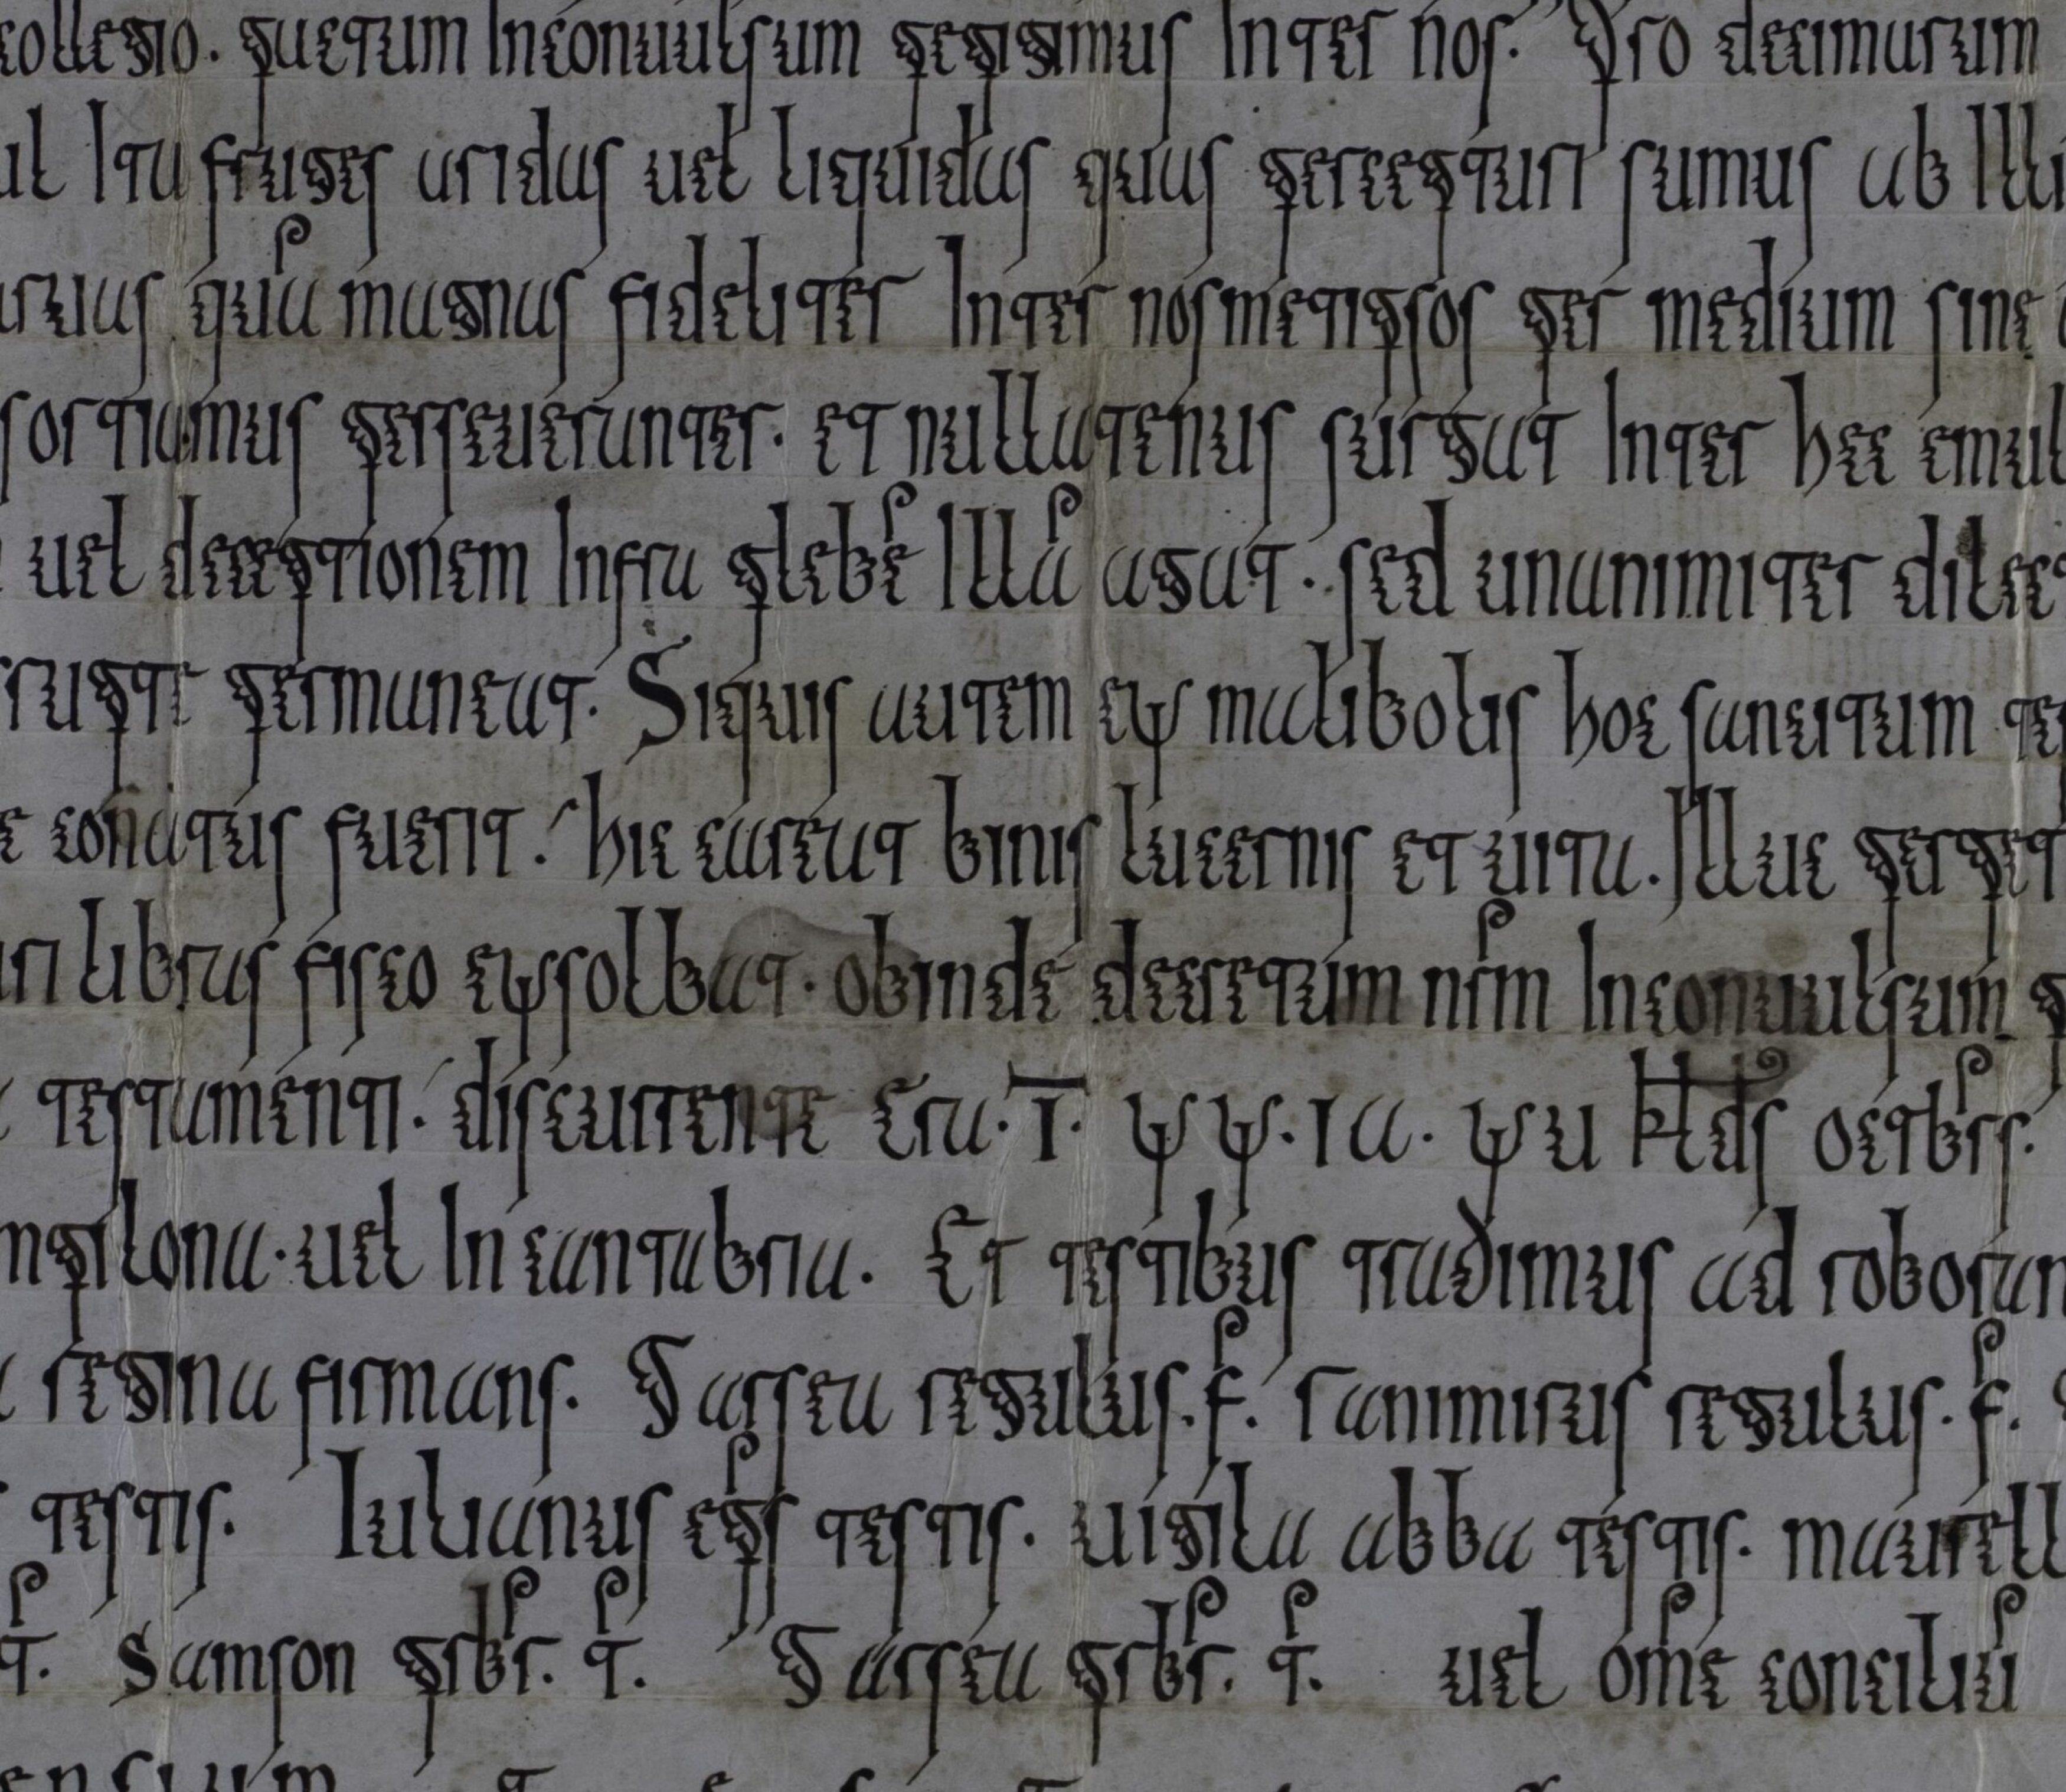 collegio. pactum Inconuulsum pepigimus Inter nos. Pro decimarum
Ita fruges aridas uel liquidas quas percepturi sumus ab
qua magnas fideliter Inter nosmetipsos per medium sine
sortiamus perseueranter. et nullatenus surgat Inter hec
uel deceptionem Infra plebe Illa agat. sed unanimiter
permaneat. Siquis autem ex malibolis hoc sancitum
conatus fuerit. hic careat binis lucernis et uita. Illuc
libras fisco exsolbat. obinde decretum nrm Inconuulsum
testamenti. discurrente Era. T. xx. ia. xu Klds octbrs.
uel In cantabria. Et testibus tradimus ad
regina firmans. Garsea regulus. f. ranimirus regulus. f.
testis. Iulianus eps testis. uigila abba testis.
t. Samson prbr. t. Garsea prbr. t. uel ome conciliu